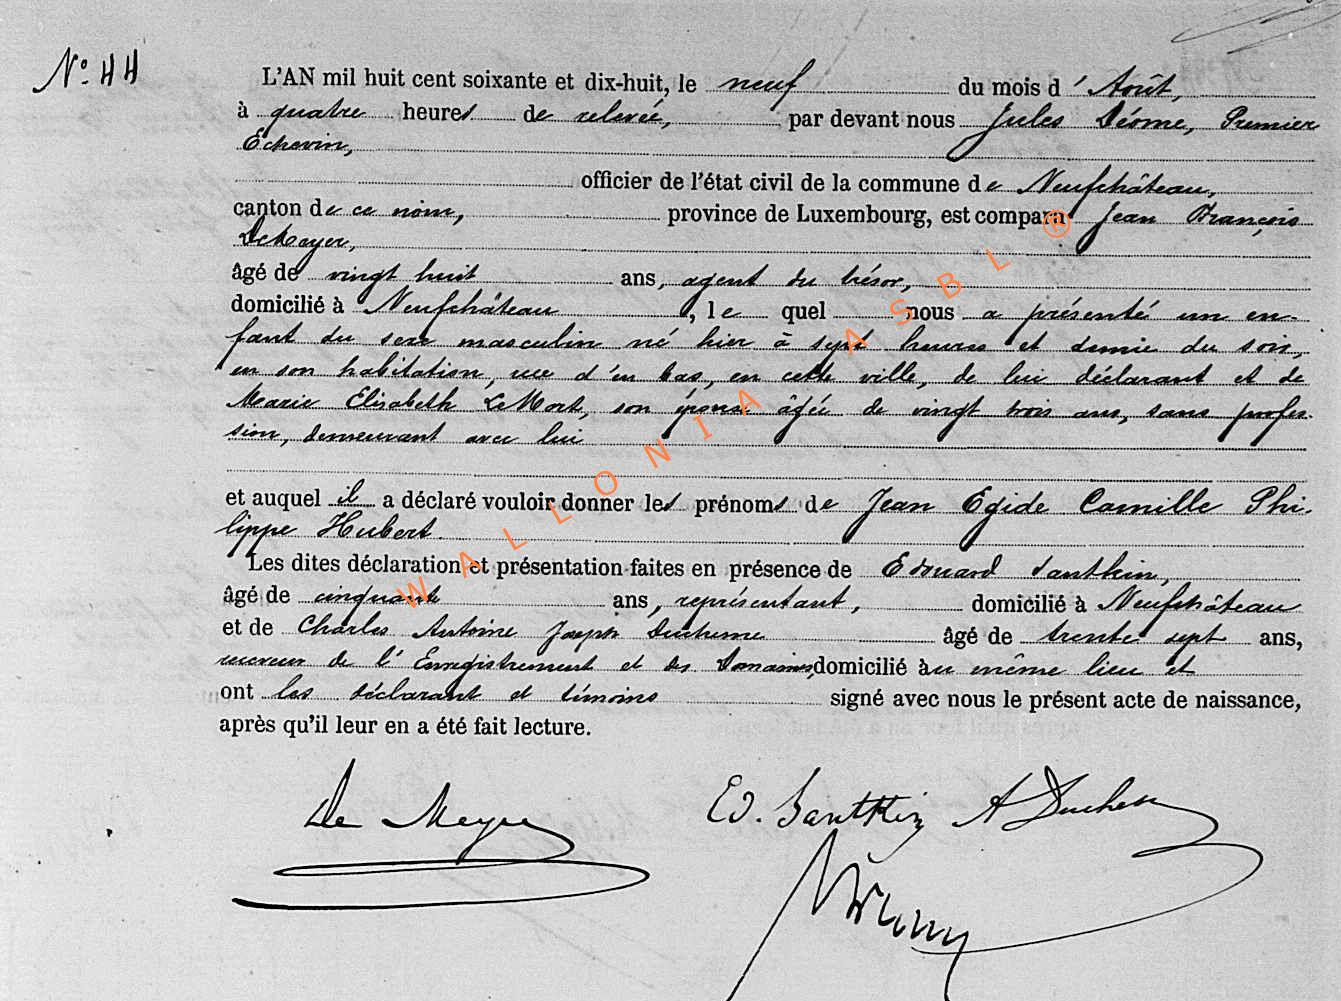 N° 44
L'AN mil huit cent soixante et dix-huit, le neuf du mois d'Août,
à quatre heures de relevée, par devant nous Jules Déome, Premier
Echevin,
officier de l'état civil de la commune de Neufchâteau,
canton de ce nom, province de Luxembourg, est comparu Jean François
DeMayer,
âgé de vingt huit ans, agent du trésor,
domicilié à Neufchâteau, lequel nous a présenté un en-
fant du sexe masculin né hier à sept heures et demie du soir,
en son habitation, rue d'en bas, en cette ville, de lui déclarant et de
Marie Elisabeth LeMort, son épouse âgée de vingt trois ans, sans profes-
sion, demeurant avec lui
et auquel il a déclaré vouloir donner les prénoms de Jean Egide Camille Phi-
lippe Hubert.
Les dites déclaration et présentation faites en présence de Edouard Santkin,
âgé de cinquante ans, représentant, domicilié à Neufchâteau
et de Charles Antoine Joseph Duchesne âgé de trente sept ans,
receveur de l'Enregistrement et des Domaines, domicilié au même lieu et
ont les déclarant et témoins signé avec nous le présent acte de naissance,
après qu'il leur en a été fait lecture.
De Meyer Ed. Santkin A Duchesn
WALLONIA ASBL ®